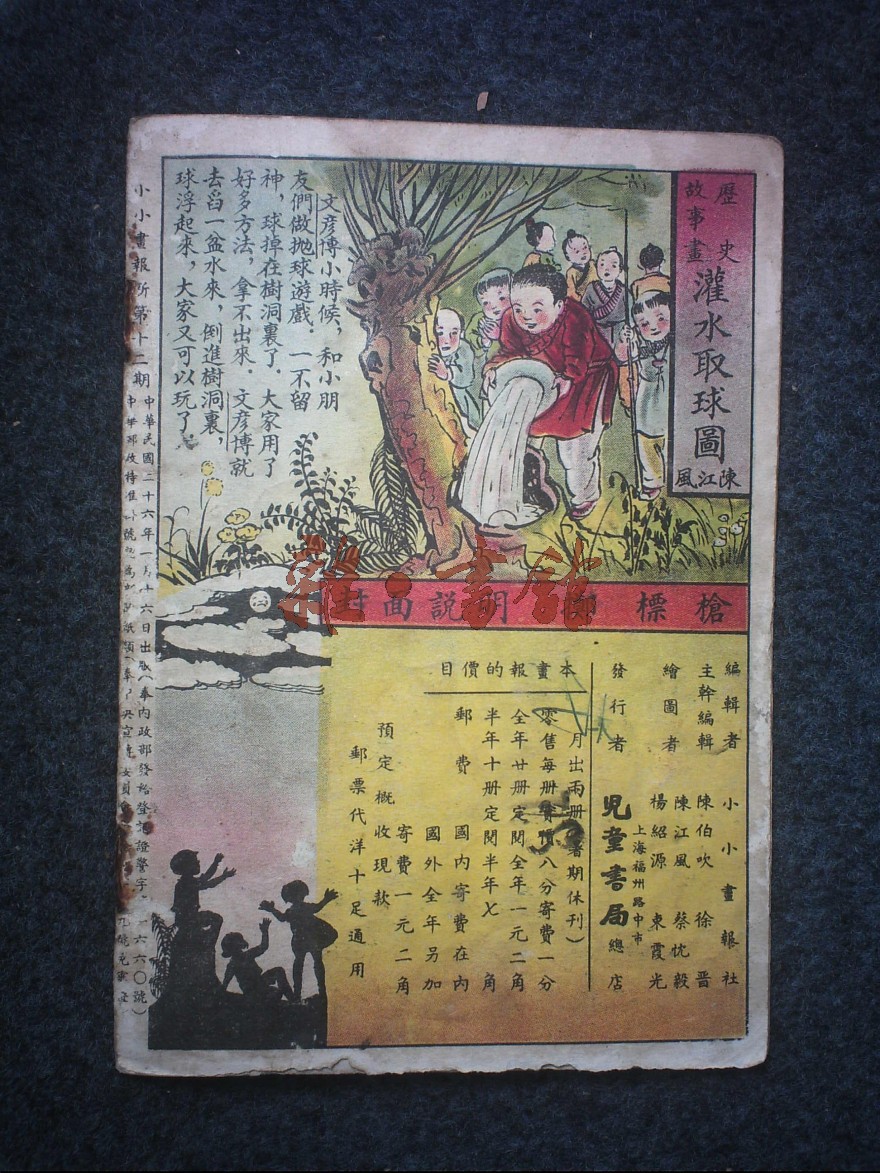 歷史
故事畫
灌水取球圖
陳江風
文彥博小時候，和小朋
友們做拋球遊戲．一不留
神，球掉在樹洞裏了．大家用了
好多方法，拿不出來．文彥博就
去舀一盆水來，倒進樹洞裏，
球浮起來，大家又可以玩了．
槍標
明說面封
雜·書館
編輯者 小小畫報社
主幹編輯 陳伯吹 徐晋
繪圖者 陳江風 蔡忱毅
楊紹源 東霞光
發行者 上海福州路中市
兒童書局總店
本畫報的價目
月出兩册 暑期休刊）
零售每册 八分寄費一分
全年廿册定閱全年一元二角
半年十册定閱半年七角
郵費 國內寄費在內
國外全年另加
寄費一元二角
預定概收現款
郵票代洋十足通用
小小畫報 第十二期
中華民國二十六年一月十六日出版（奉內政部發給登記證警字 一六六〇號）